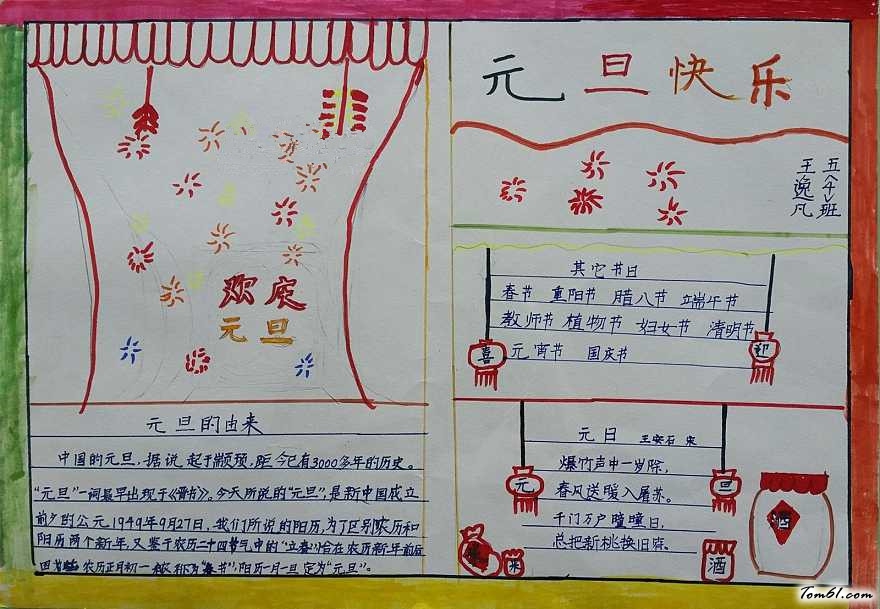 欢度
元旦
元旦的由来
中国的元旦，据说起于颛顼，距今已有3000多年的历史。
“元旦”一词最早出现于《晋书》。今天所说的“元旦”，是新中国成立
前夕的公元1949年9月27日，我们所说的阳历，为了区别农历和
阳历两个新年，又鉴于农历二十四节气中的“立春”恰在农历新年前后
农历正月初一 称为“春节”，阳历一月一日定为“元旦”。
元旦快乐
五〈4〉班
王逸凡
其它节日
春节 重阳节 腊八节 端午节
教师节 植物节 妇女节 清明节
元宵节 国庆节
喜
迎
元日 王安石 宋
爆竹声中一岁除，
春风送暖入屠苏。
千门万户曈曈日，
总把新桃换旧符。
元
旦
酒
酒
米
Tom61.com